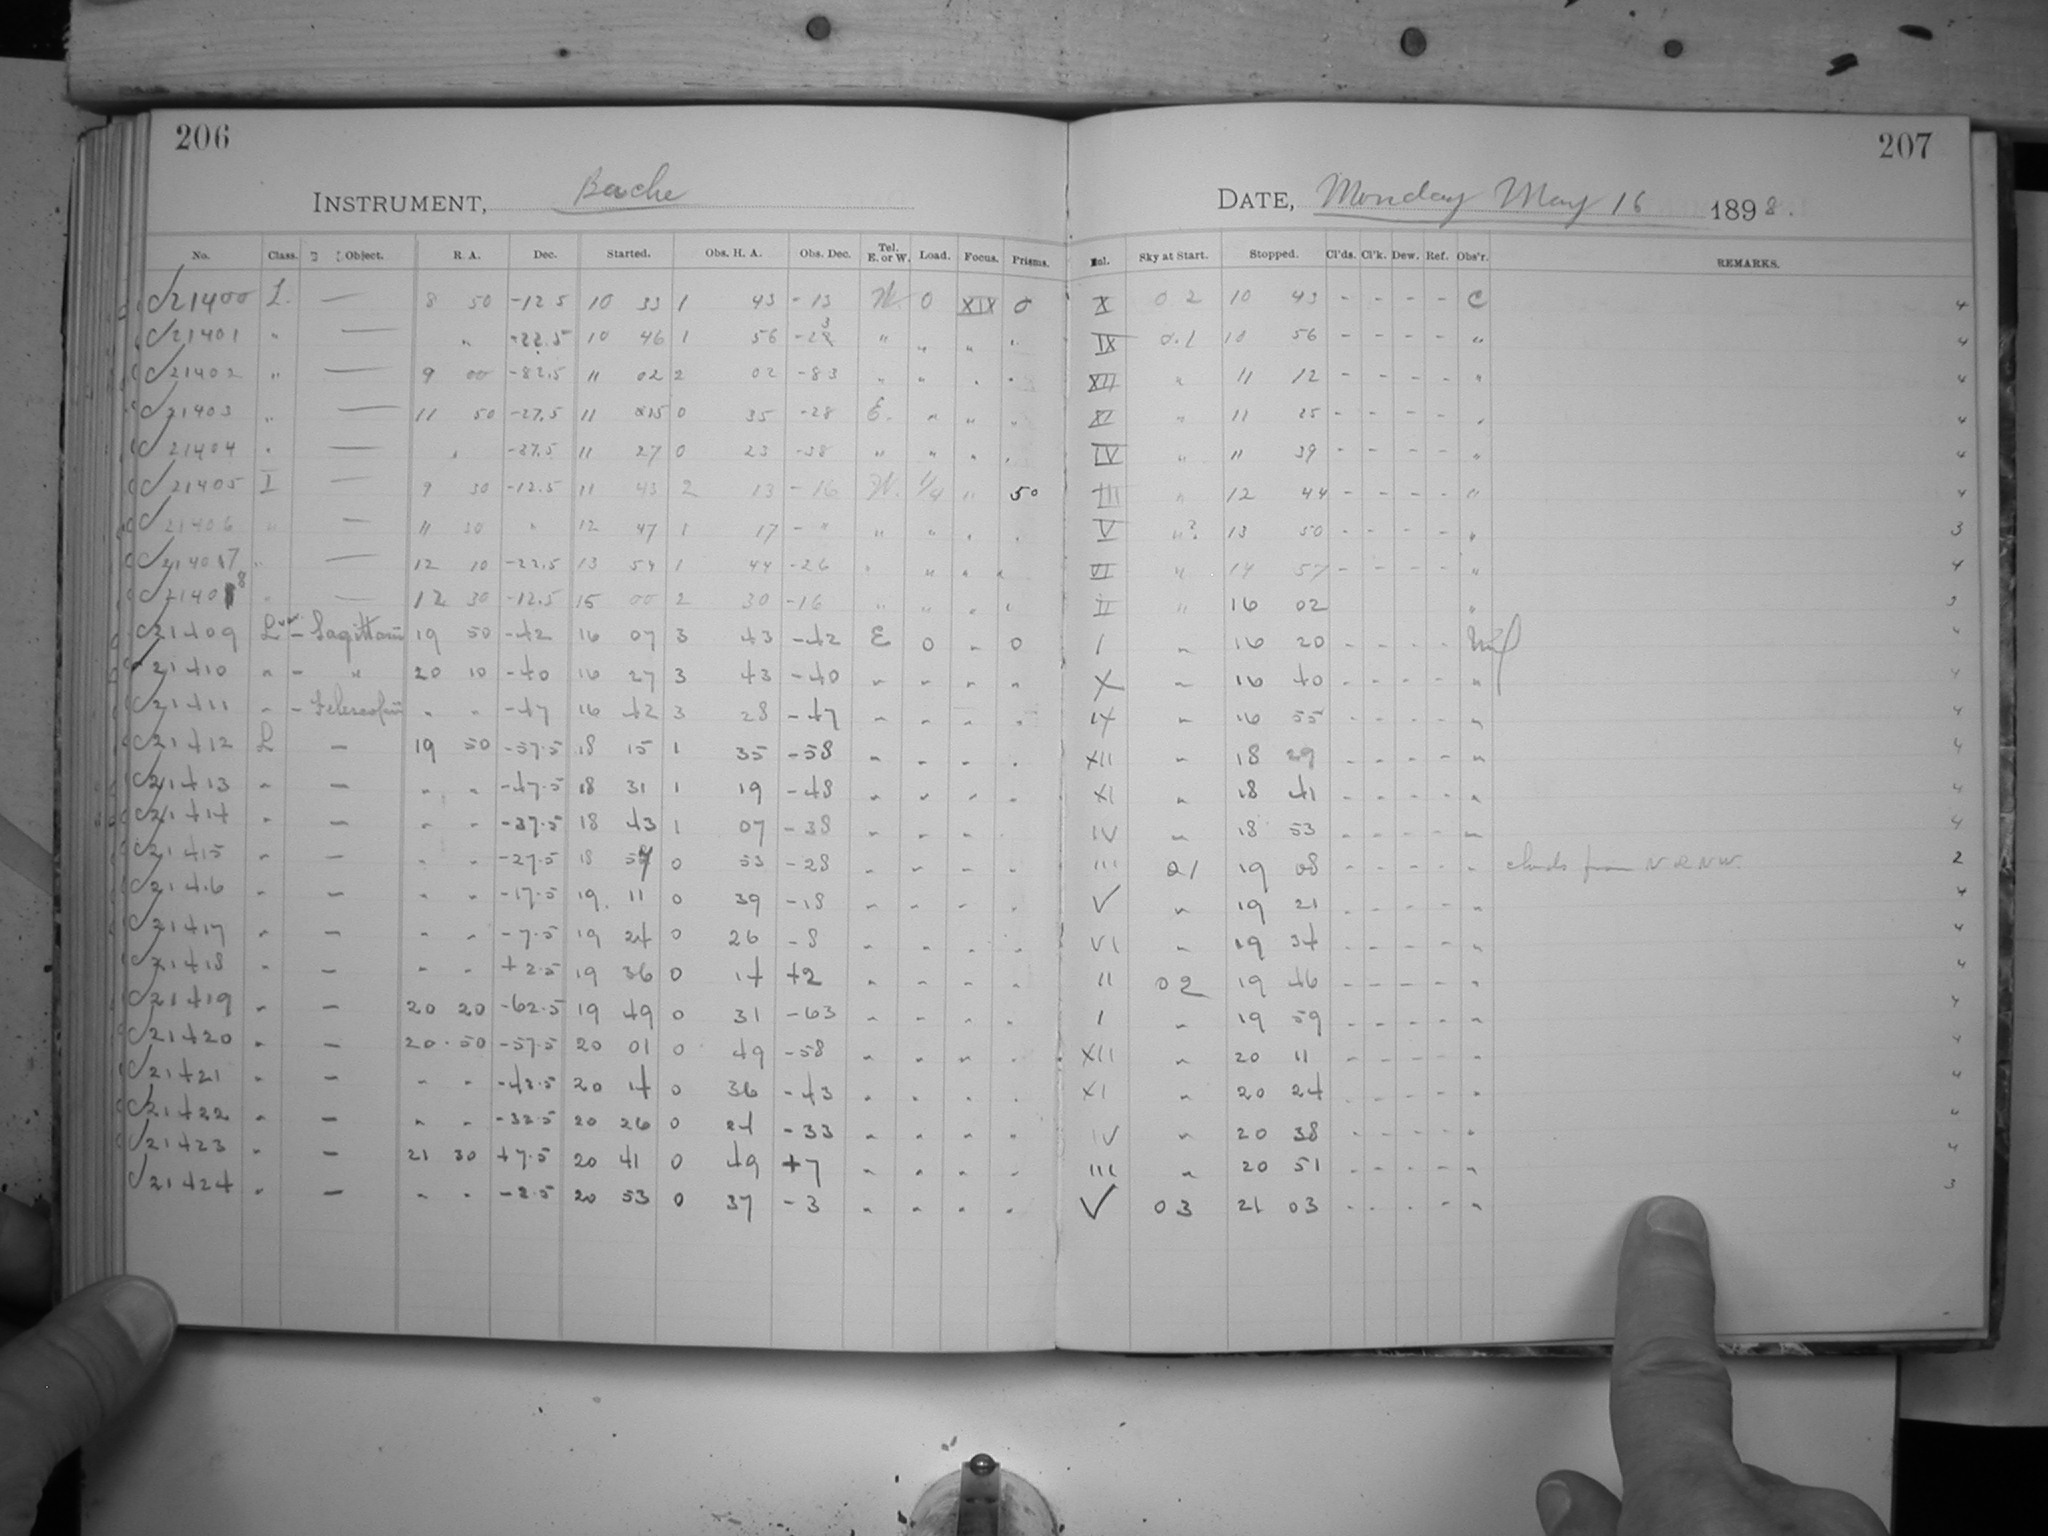 206
INSTRUMENT, Bache
No. Class. Object. R. A. Dec. Started. Obs. H. A. Obs. Dec. Tel. E. or W. Load. Focus. Prisms.
21400 L. — 8 50 -12.5 10 33 1 43 -13 W. 0 XIX 0
21401 " — " -22.5 10 46 1 56 -23 " " " "
21402 " — 9 00 -82.5 11 02 2 02 -83 " " " "
21403 " — 11 50 -27.5 11 15 0 35 -28 E. " " "
21404 " — " -37.5 11 27 0 23 -38 " " " "
21405 I — 9 30 -12.5 11 43 2 13 -16 W. 1/4 " 50
21406 " — 11 30 " 12 47 1 17 - " " " " "
21407 " — 12 10 -22.5 13 54 1 44 -26 " " " "
21408 " — 12 30 -12.5 15 00 2 30 -16 " " " "
21409 L var — Sagittarii 19 50 -42 16 07 3 43 -42 E 0 " 0
21410 " — " 20 10 -40 16 27 3 43 -40 " " " "
21411 " — Telescopii " " -47 16 42 3 28 -47 " " " "
21412 L — 19 50 -57.5 18 15 1 35 -58 " " " "
21413 " — " " -47.5 18 31 1 19 -48 " " " "
21414 " — " " -37.5 18 43 1 07 -38 " " " "
21415 " — " " -27.5 18 57 0 53 -28
21416 " — " " -17.5 19 11 0 39 -18 " " " "
21417 " — " " -7.5 19 24 0 26 -8 " " " "
21418 " — " " +2.5 19 36 0 14 +2 " " " "
21419 " — 20 20 -62.5 19 49 0 31 -63 " " " "
21420 " — 20 50 -57.5 20 01 0 49 -58 " " " "
21421 " — " " -43.5 20 14 0 36 -43 " " " "
21422 " — " " -32.5 20 26 0 24 -33 " " " "
21423 " — 21 30 +7.5 20 41 0 49 +7 " " " "
21424 " — " " -2.5 20 53 0 37 -3 " " " "
207
DATE, Monday May 16 1898.
Sky at Start. Stopped. Cl'ds. Cl'k. Dew. Ref. Obs'r. REMARKS.
X 02 10 43 - - - - C 4
IX 0.1 10 56 - - - - " 4
XII " 11 12 - - - - " 4
XI " 11 25 - - - - " 4
IV " 11 39 - - - - " 4
III " 12 44 - - - - " 4
V "? 13 50 - - - - " 3
VI " 14 57 - - - - " 4
II " 16 02 " 3
I " 16 20 - - - - 4
X " 16 40 - - - - " 4
IX " 16 55 - - - - " 4
XII " 18 29 - - - - " 4
XI " 18 41 - - - - " 4
IV " 18 53 - - - - " 4
III 01 19 08 - - - - " clouds from N & NW. 2
V " 19 21 - - - - " 4
VI " 19 34 - - - - " 4
II 02 19 46 - - - - " 4
I " 19 59 - - - - " 4
XII " 20 11 - - - - " 4
XI " 20 24 - - - - " 4
IV " 20 38 - - - - "
III " 20 51 - - - - " 4
V 03 21 03 - - - - " 3